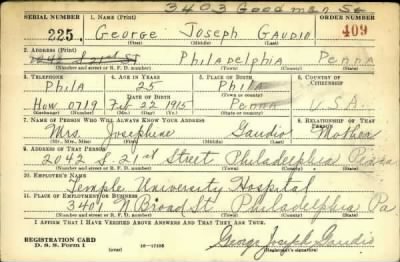 3403 Goodman St
SERIAL NUMBER 1. NAME (Print) ORDER NUMBER
225 George Joseph Gaudio 409
(First) (Middle) (Last)
2. ADDRESS (Print)
2042 S 21st St Philadelphia Penna
(Number and street or R. F. D. number) (Town) (County) (State)
3. TELEPHONE 4. AGE IN YEARS 5. PLACE OF BIRTH 6. COUNTRY OF CITIZENSHIP
Phila 25 Phila
DATE OF BIRTH (Town or county)
How 0719 Feb 22 1915 Penna U.S.A.
(Exchange) (Number) (Mo.) (Day) (Yr.) (State or country)
7. NAME OF PERSON WHO WILL ALWAYS KNOW YOUR ADDRESS 8. RELATIONSHIP OF THAT PERSON
Mrs. Josephine Gaudio Mother
(Mr., Mrs., Miss) (First) (Middle) (Last)
9. ADDRESS OF THAT PERSON
2042 S. 21st Street Philadelphia Penna
(Number and street or R. F. D. number) (Town) (County) (State)
10. EMPLOYER'S NAME
Temple University Hospital
11. PLACE OF EMPLOYMENT OR BUSINESS
3401 N Broad St Philadelphia Pa
(Number and street or R. F. D. number) (Town) (County) (State)
I AFFIRM THAT I HAVE VERIFIED ABOVE ANSWERS AND THAT THEY ARE TRUE.
REGISTRATION CARD
D. S. S. Form 1
George Joseph Gaudio
(Registrant's signature)